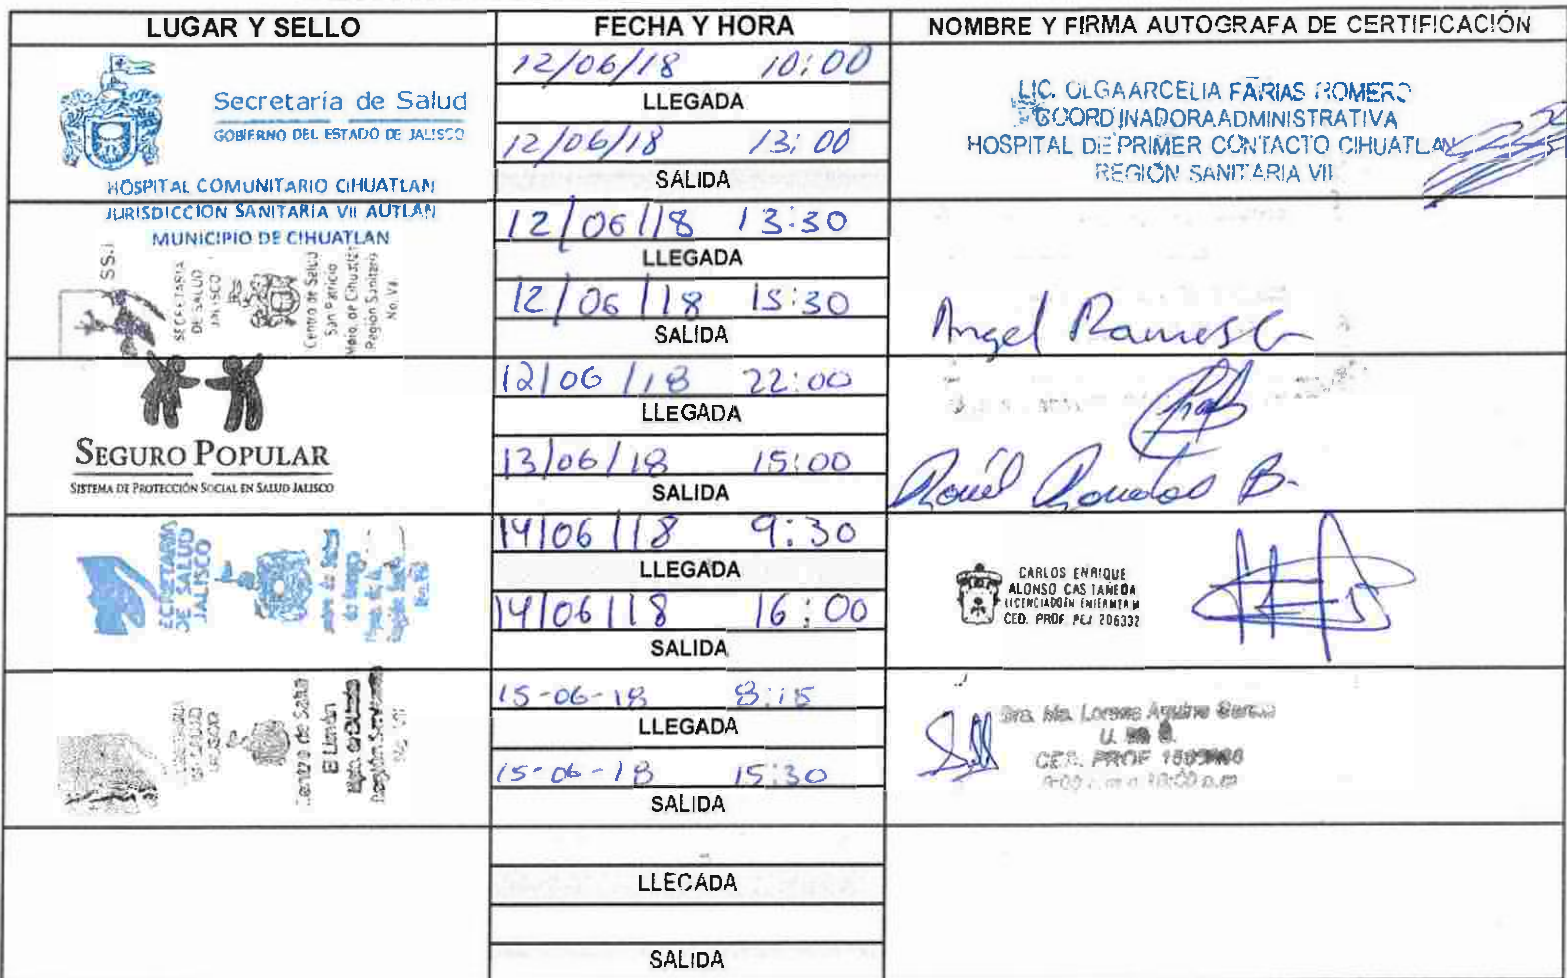 LUGAR Y SELLO
FECHA Y HORA
NOMBRE Y FIRMA AUTOGRAFA DE CERTIFICACIÓN
Secretaría de Salud
GOBIERNO DEL ESTADO DE JALISCO
HOSPITAL COMUNITARIO CIHUATLAN
JURISDICCION SANITARIA VII AUTLAN
MUNICIPIO DE CIHUATLAN
12/06/18 10:00
LLEGADA
12/06/18 13:00
SALIDA
LIC. OLGA ARCELIA FARIAS ROMERO
COORDINADORA ADMINISTRATIVA
HOSPITAL DE PRIMER CONTACTO CIHUATLAN
REGIÓN SANITARIA VII
SECRETARIA
DE SALUD
JALISCO
Centro de Salud
San Patricio
Mpio. de Cihuatlán
Región Sanitaria
No. VII
12/06/18 13:30
LLEGADA
12/06/18 15:30
SALIDA
Angel Rames G
SEGURO POPULAR
SISTEMA DE PROTECCIÓN SOCIAL EN SALUD JALISCO
12/06/18 22:00
LLEGADA
13/06/18 15:00
SALIDA
B.
SECRETARIA
DE SALUD
JALISCO
14/06/18 9:30
LLEGADA
14/06/18 16:00
SALIDA
CARLOS ENRIQUE
ALONSO CASTAÑEDA
LICENCIADO EN ENFERMERIA
CED. PROF. PEJ 206332
Centro de Salud
El Limón
15-06-18 8:15
LLEGADA
15-06-18 15:30
SALIDA
Dra. Ma. Lorena Aquino Garcia
CED. PROF
LLEGADA
SALIDA